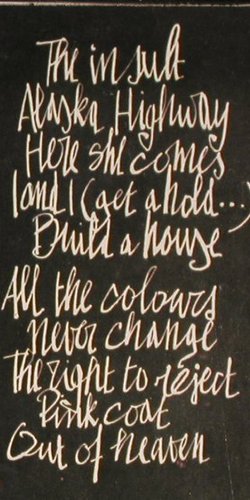 The insult
Alaska Highway
Here she comes
I and I (get a hold...)
Build a house
All the colours
Never change
The right to reject
Pink coat
Out of heaven